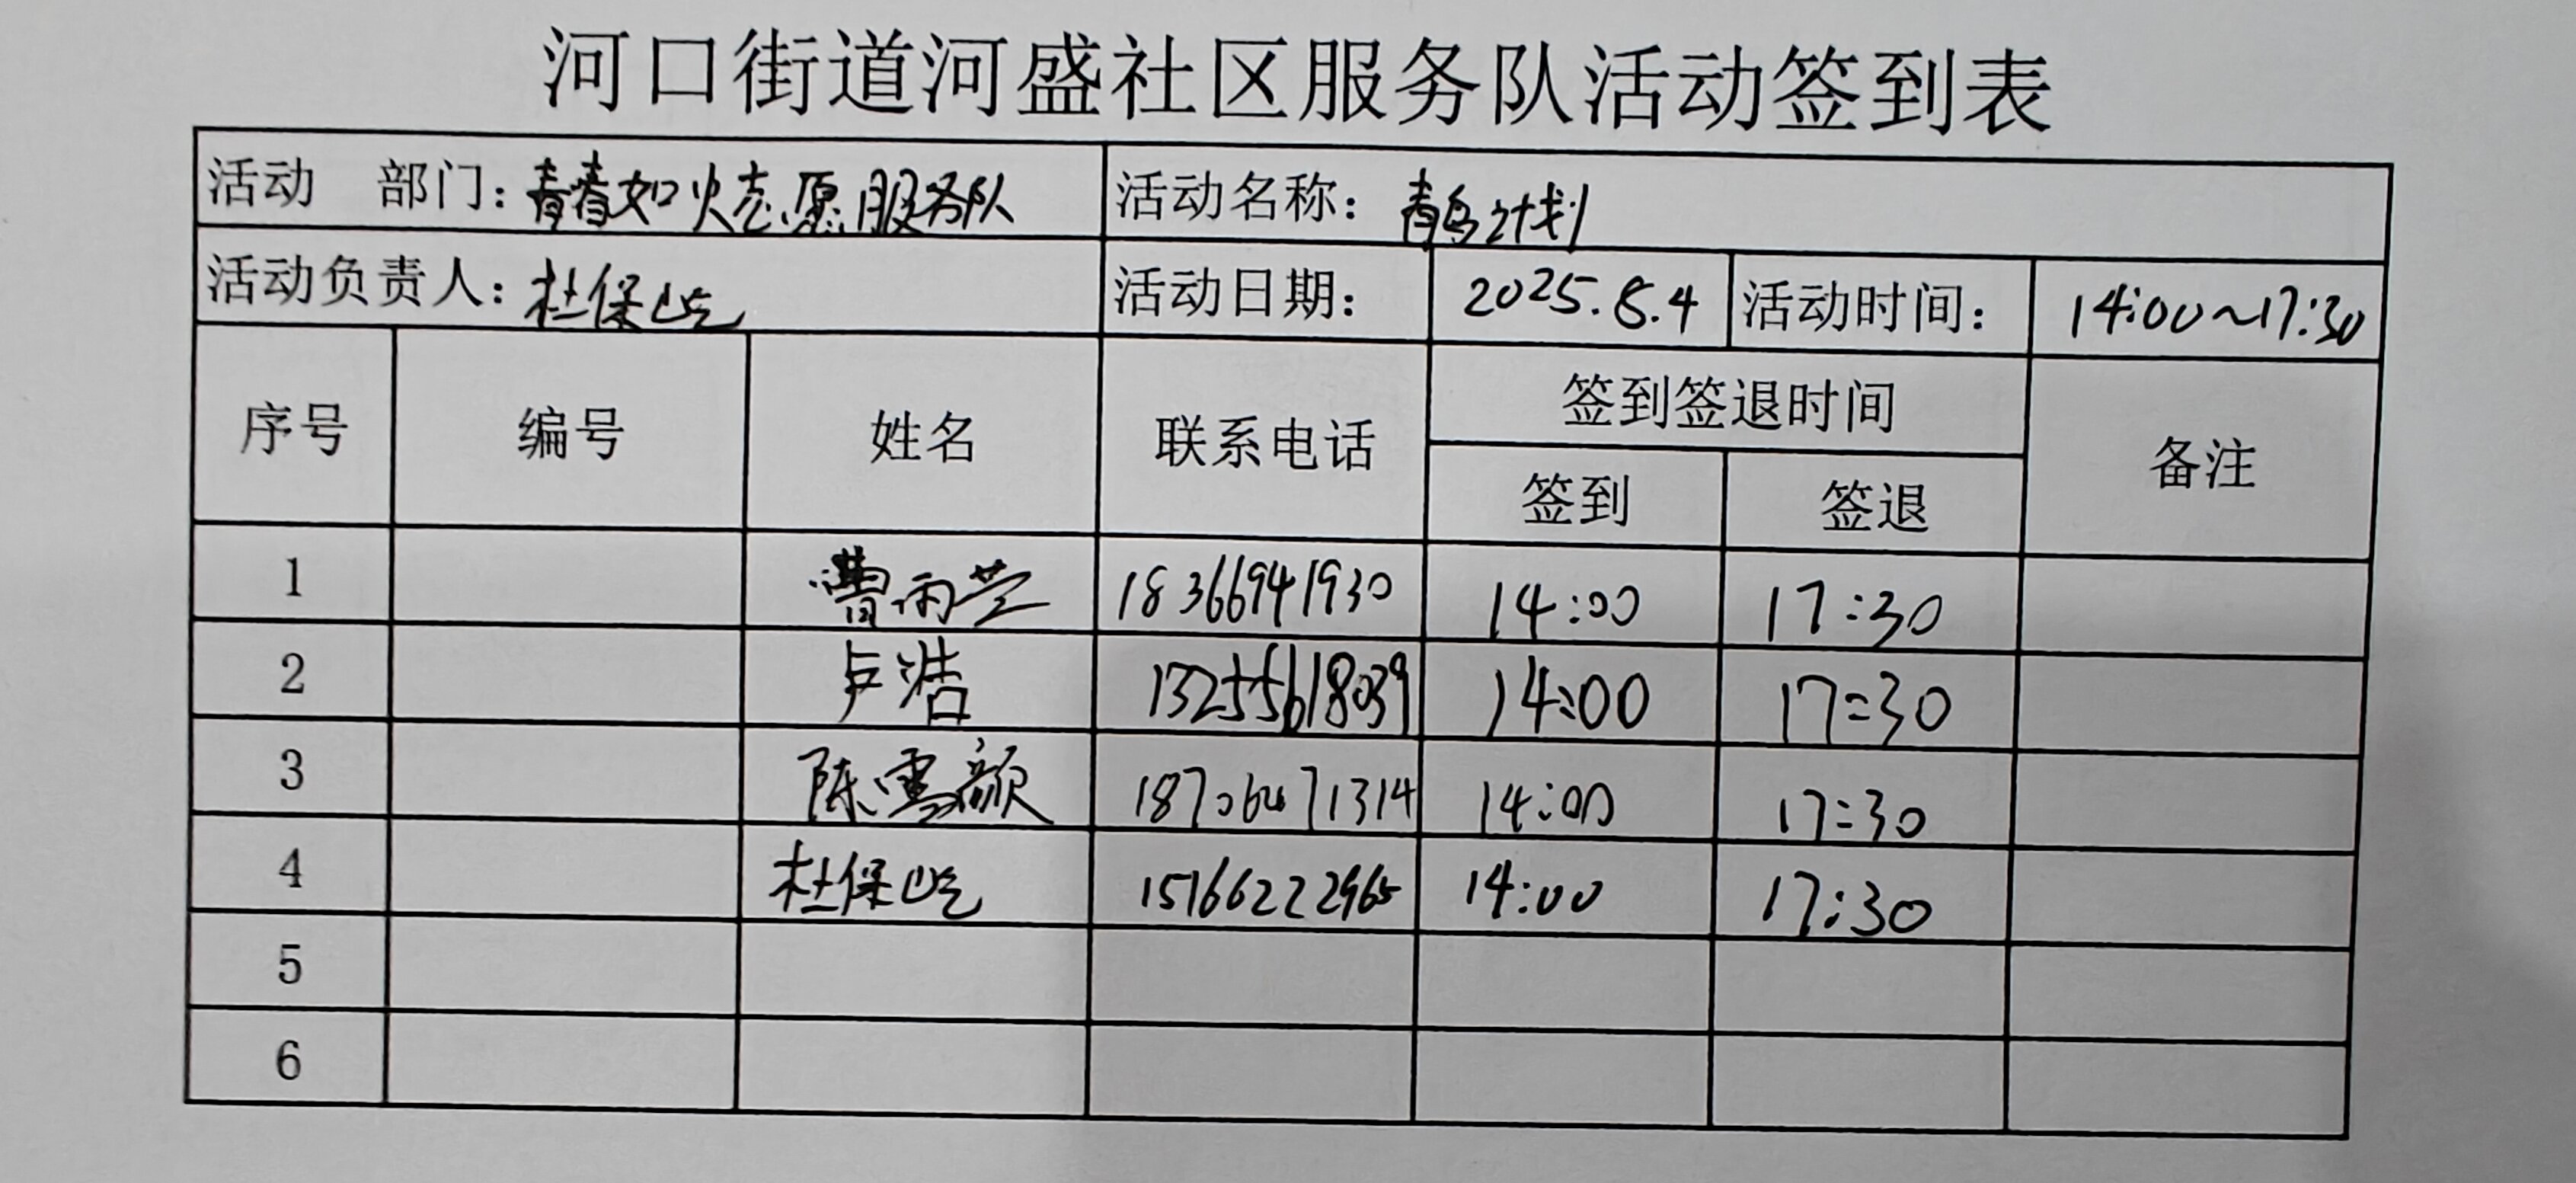 河口街道河盛社区服务队活动签到表
活动 部门：青春如火志愿服务队 活动名称：青鸟计划
活动负责人：杜保屹 活动日期： 2025.8.4 活动时间： 14:00~17:30
序号 编号 姓名 联系电话 签到签退时间 备注
签到 签退
1 曹雨芝 18366941930 14:00 17:30
2 卢浩 13255618039 14:00 17:30
3 陈雪颜 14:00 17:30
4 杜保屹 15166222965 14:00 17:30
5
6